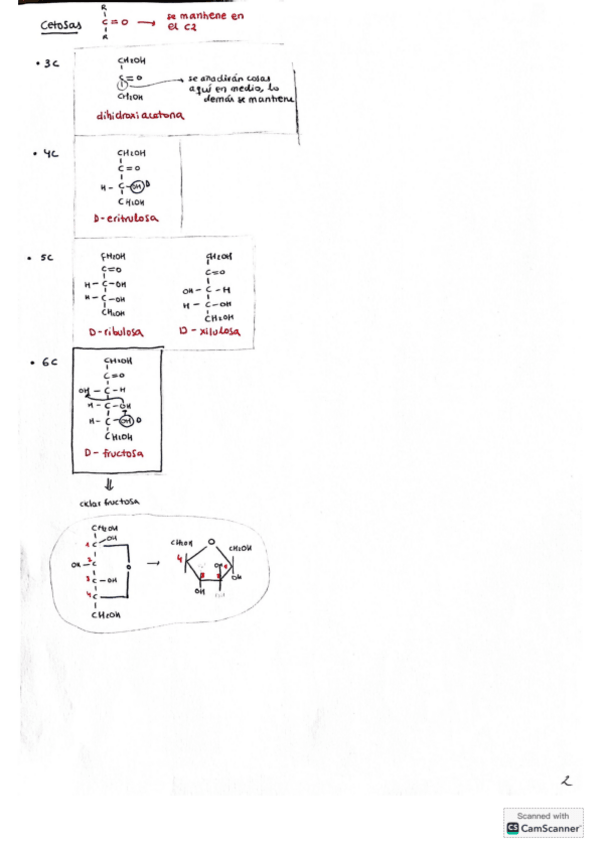 Cetosas
R
C = O → se mantiene en
el C2
R
• 3C
CH2OH
C = O → se añadirán cosas
aquí en medio, lo
demás se mantiene
CH2OH
dihidroxi acetona
• 4C
CH2OH
C = O
H - C - OH D
CH2OH
D-eritrulosa
• 5C
CH2OH
C = O
H - C - OH
H - C - OH
CH2OH
D-ribulosa
CH2OH
C = O
OH - C - H
H - C - OH
CH2OH
D-xilulosa
• 6C
CH2OH
C = O
OH - C - H
H - C - OH
H - C - OH D
CH2OH
D-fructosa
⇓
ciclar fructosa
CH2OH
1 C OH
OH - 2 C
O
3 C - OH
4 C
CH2OH
→
CH2OH O CH2OH
4
OH
OH
2
Scanned with
CS CamScanner